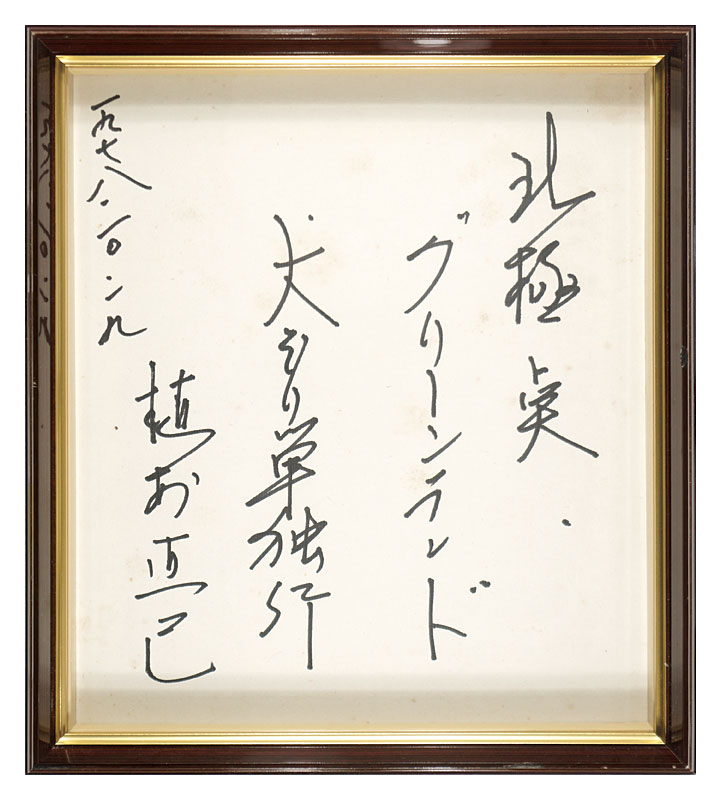 北極点・
グリーンランド
犬ぞり単独行
一九七八・一〇・一九
植村直己